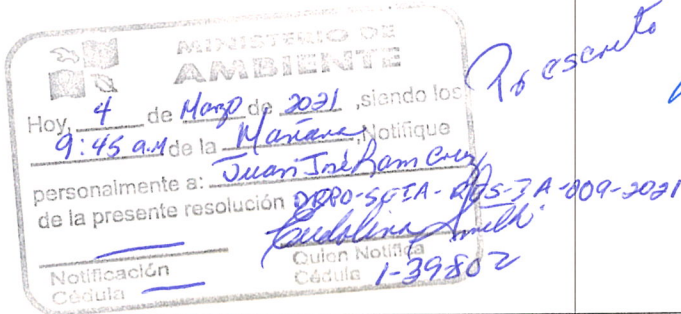 MINISTERIO DE
AMBIENTE
Hoy, 4 de Marzo de 2021, siendo los
9:45 a.M de la Mañana, Notifique
personalmente a: Juan José Ram Cruz
de la presente resolución DRPO-SEIA-RES-IA-009-2021
Notificación
Cédula
Quien Notifica
Cédula 1-39-802
Por escrito